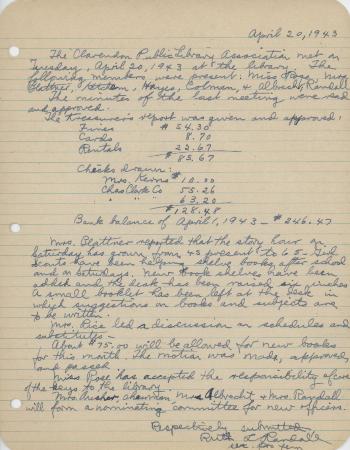 April 20, 1943
The Clarendon Public Library Association met on
Tuesday, April 20, 1943 at the library. The
following members were present: Miss Rose, Mrs.
Blattner, Hayes, Colman, & Albrecht, Randall
The minutes of the last meeting were read
and approved.
The treasurer's report was given and approved:
Fines $54.30
Cards 8.70
Rentals 22.67
$85.67
Checks drawn:
Mrs. Kerns $10.00
Chas Clark Co 55.26
" " " 63.20
$128.48
Bank balance of April 1, 1943 - $246.47
Mrs. Blattner reported that the story hour on
Saturday has grown from 43 present to 65. Girl
Scouts have been helping shelve books after school
and on Saturdays. New book shelves have been
added and the desk has been raised six inches.
A small booklet has been left at the desk in
which suggestions on books and subjects are
to be written.
Mrs. Rice led a discussion on schedules and
substitutes -
About $75.00 will be allowed for new books
for this month. The motion was made, approved,
and passed.
Miss Rose has accepted the responsibility of care
of the keys to the library.
Mrs. chairman, Mrs. Albrecht & Mrs. Randall
will form a nominating committee for new officers.
Respectively submitted
Ruth L. Randall
sec. pro tem